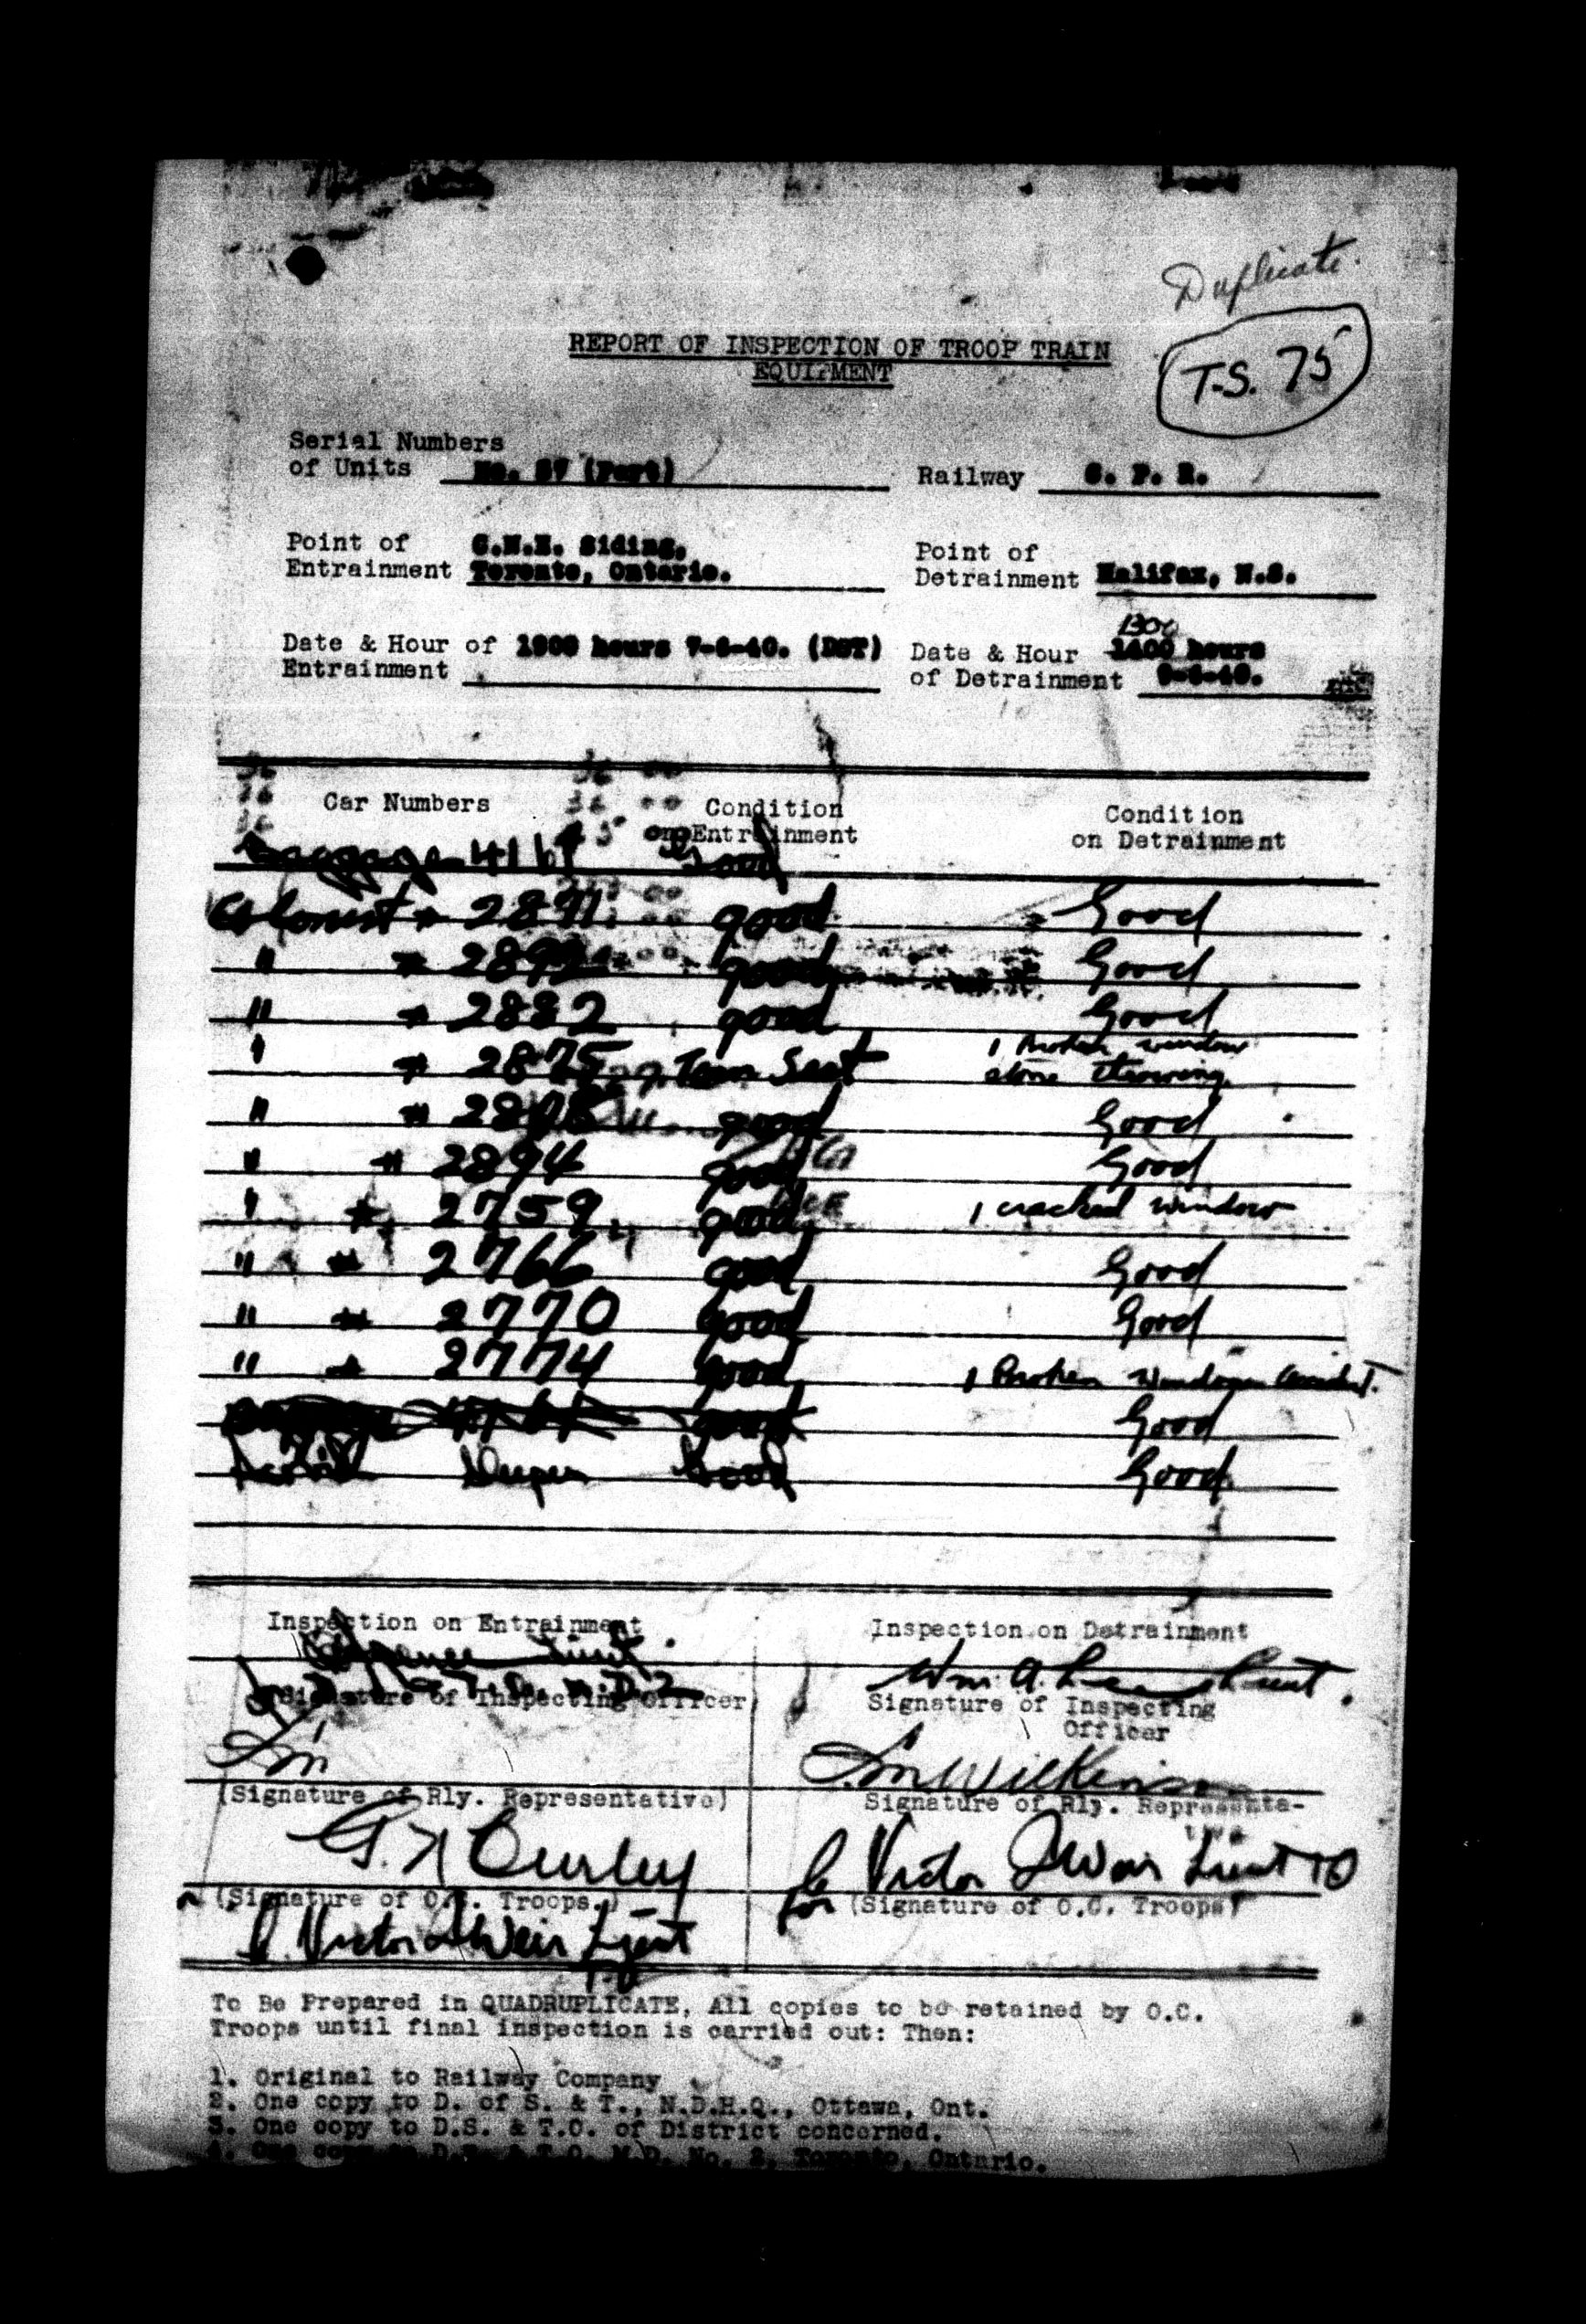 Duplicate.
T.S. 75
REPORT OF INSPECTION OF TROOP TRAIN
EQUIPMENT
Serial Numbers
of Units No. 57 (Part) Railway C. P. R.
Point of C.N.E. Siding,
Entrainment Toronto, Ontario.
Point of
Detrainment Halifax, N.S.
Date & Hour of 1900 hours 7-6-40. (DST)
Entrainment
1300
Date & Hour 1400 hours
of Detrainment 9-6-40.
Car Numbers Condition on Entrainment Condition on Detrainment
Baggage 4161 Good
Colonist # 2871 good Good
" # 2892 good Good
" # 2882 good Good
" # 2875 Torn Seat 1 Broken window stone throwing.
" # good Good
" # 2894 good Good
" # 2759 good 1 cracked window
" # 2766 good Good
" # 2770 good Good
" # 2774 good 1 Broken Window accident.
Good
Sleeper Good Good.
Inspection on Entrainment Inspection on Detrainment
Lieut. Wm. A. Lieut.
Signature of Inspecting Officer Signature of Inspecting
Officer
Wilkinson
(Signature of Rly. Representative) Signature of Rly. Representa-
tive
G. Burley for Victor Weir Lieut
(Signature of O.C. Troops.) (Signature of O.C. Troops)
Victor Weir Lieut
To Be Prepared in QUADRUPLICATE, All copies to be retained by O.C.
Troops until final inspection is carried out: Then:
1. Original to Railway Company
2. One copy to D. of S. & T., N.D.H.Q., Ottawa, Ont.
3. One copy to D.S. & T.O. of District concerned.
4. One copy to D.S. & T.O. M.D. No. 2, Toronto, Ontario.